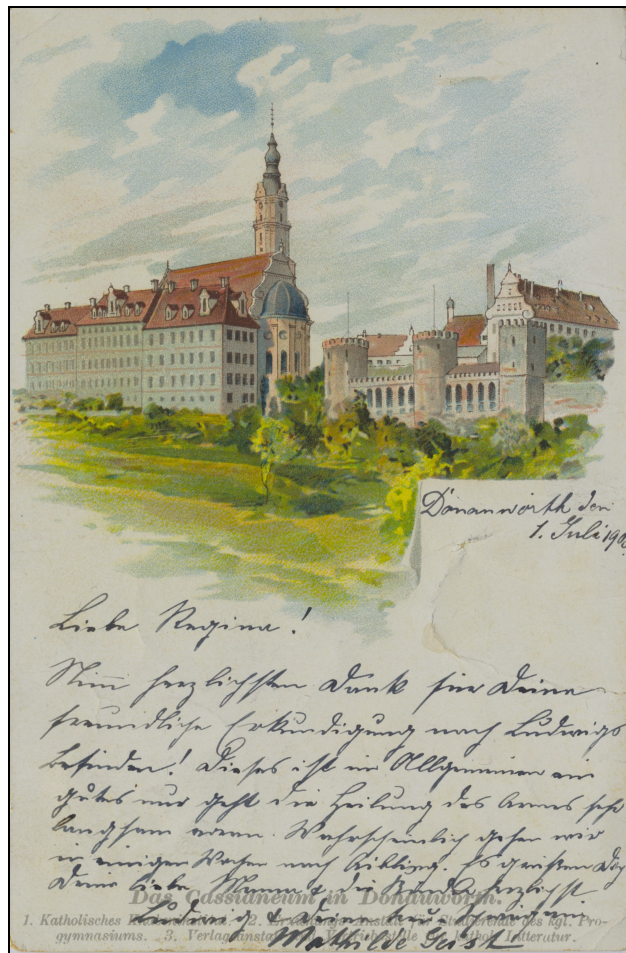 Donauwörth den
1. Juli 190
Liebe Regina!
Nimm herzlichsten Dank für Deine
freundliche Erkundigung nach Ludwigs
Befinden! Dieses ist im Allgemeinen ein
gutes nur geht die Heilung des Armes sehr
langsam voran. Wahrscheinlich gehen wir
in einigen Wochen nach Aibling. Es grüßen Dich
Deine liebe Mama & die herzlichst
Ludwig & Deine
Mathilde Geist
Das Cassianeum in Donauwörth.
1. Katholisches 2. Erziehungsanstalt für Studierende des kgl. Pro-
gymnasiums. 3. Verlagsanstalt kathol. Litteratur.